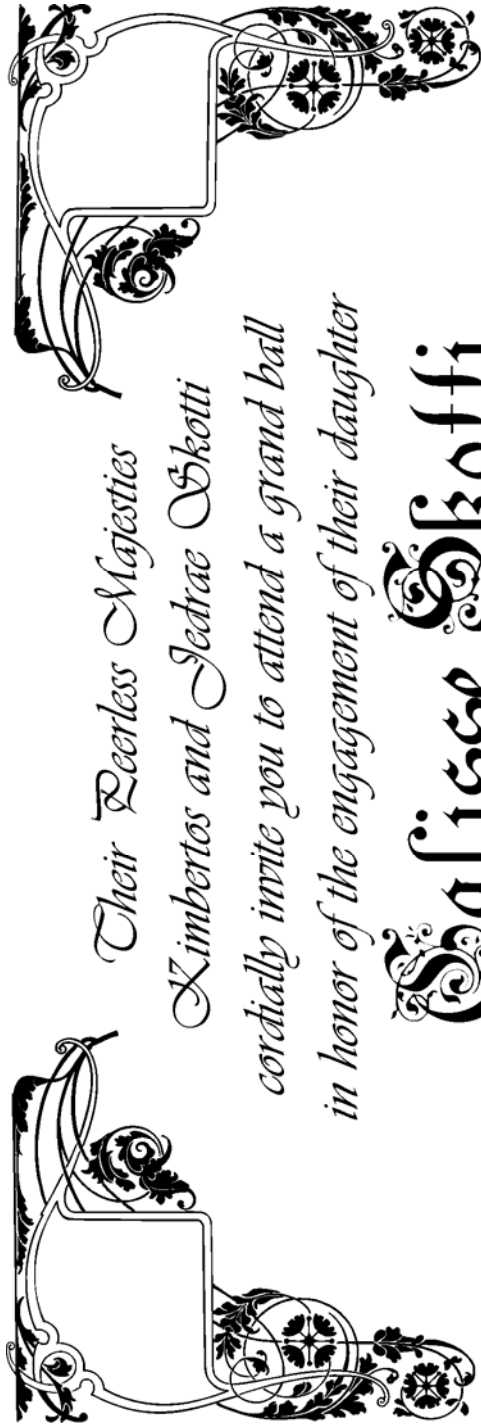 Their Peerless Majesties
Kimbertos and Jedrae Skotti
cordially invite you to attend a grand ball
in honor of the engagement of their daughter
Skotti